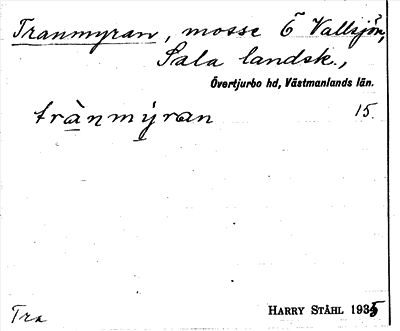 Tranmyran, mosse Ö Vallsjön,
Sala landsk.,
Övertjurbo hd, Västmanlands län.
trànmýran 15.
Tra
HARRY STÅHL 1935